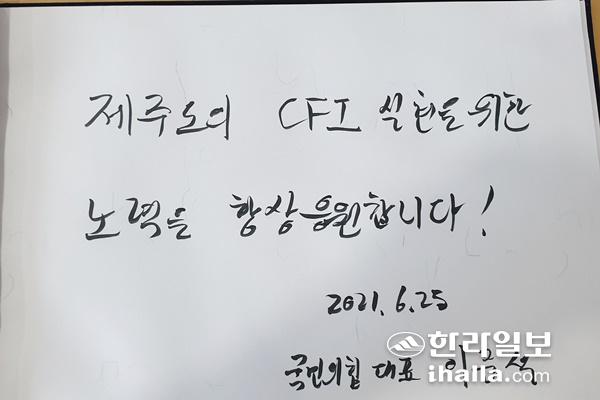 제주도의 CFI 실현을 위한
노력을 항상 응원합니다!
2021. 6. 25
국민의힘 대표 이준석
한라일보
ihalla.com